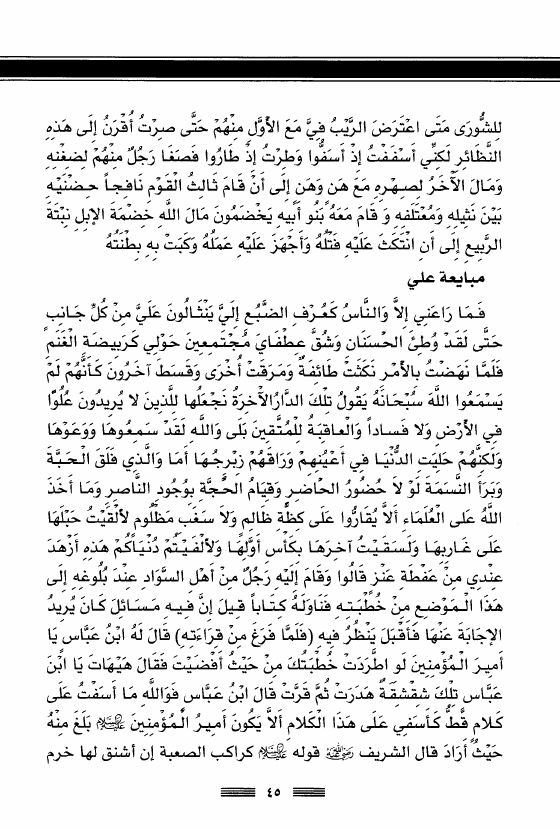 للشُّورَى مَتَى اعْتَرَضَ الرَّيْبُ فِيَّ مَعَ الأَوَّلِ مِنْهُمْ حَتَّى صِرْتُ أُقْرَنُ إِلَى هَذِهِ
النَّظَائِرِ لَكِنِّي أَسْفَفْتُ إِذْ أَسَفُّوا وَطِرْتُ إِذْ طَارُوا فَصَغَا رَجُلٌ مِنْهُمْ لِضِغْنِهِ
وَمَالَ الآخَرُ لِصِهْرِهِ مَعَ هَنٍ وَهَنٍ إِلَى أَنْ قَامَ ثَالِثُ الْقَوْمِ نَافِجاً حِضْنَيْهِ
بَيْنَ نَثِيلِهِ وَمُعْتَلَفِهِ وَ قَامَ مَعَهُ بَنُو أَبِيهِ يَخْضَمُونَ مَالَ اللَّهِ خِضْمَةَ الإِبِلِ نِبْتَةَ
الرَّبِيعِ إِلَى أَنِ انْتَكَثَ عَلَيْهِ فَتْلُهُ وَأَجْهَزَ عَلَيْهِ عَمَلُهُ وَكَبَتْ بِهِ بِطْنَتُهُ
مبايعة علي
فَمَا رَاعَنِي إِلاَّ وَالنَّاسُ كَعُرْفِ الضَّبُعِ إِلَيَّ يَنْثَالُونَ عَلَيَّ مِنْ كُلِّ جَانِبٍ
حَتَّى لَقَدْ وُطِئَ الْحَسَنَانِ وَشُقَّ عِطْفَايَ مُجْتَمِعِينَ حَوْلِي كَرَبِيضَةِ الْغَنَمِ
فَلَمَّا نَهَضْتُ بِالأَمْرِ نَكَثَتْ طَائِفَةٌ وَمَرَقَتْ أُخْرَى وَقَسَطَ آخَرُونَ كَأَنَّهُمْ لَمْ
يَسْمَعُوا اللَّهَ سُبْحَانَهُ يَقُولُ تِلْكَ الدَّارُ الآخِرَةُ نَجْعَلُها لِلَّذِينَ لا يُرِيدُونَ عُلُوًّا
فِي الأَرْضِ وَلا فَساداً وَالْعاقِبَةُ لِلْمُتَّقِينَ بَلَى وَاللَّهِ لَقَدْ سَمِعُوهَا وَوَعَوْهَا
وَلَكِنَّهُمْ حَلِيَتِ الدُّنْيَا فِي أَعْيُنِهِمْ وَرَاقَهُمْ زِبْرِجُهَا أَمَا وَالَّذِي فَلَقَ الْحَبَّةَ
وَبَرَأَ النَّسَمَةَ لَوْ لاَ حُضُورُ الْحَاضِرِ وَقِيَامُ الْحُجَّةِ بِوُجُودِ النَّاصِرِ وَمَا أَخَذَ
اللَّهُ عَلَى الْعُلَمَاءِ أَلاَّ يُقَارُّوا عَلَى كِظَّةِ ظَالِمٍ وَلاَ سَغَبِ مَظْلُومٍ لأَلْقَيْتُ حَبْلَهَا
عَلَى غَارِبِهَا وَلَسَقَيْتُ آخِرَهَا بِكَأْسِ أَوَّلِهَا وَلأَلْفَيْتُمْ دُنْيَاكُمْ هَذِهِ أَزْهَدَ
عِنْدِي مِنْ عَفْطَةِ عَنْزٍ قَالُوا وَقَامَ إِلَيْهِ رَجُلٌ مِنْ أَهْلِ السَّوَادِ عِنْدَ بُلُوغِهِ إِلَى
هَذَا الْمَوْضِعِ مِنْ خُطْبَتِهِ فَنَاوَلَهُ كِتَاباً قِيلَ إِنَّ فِيهِ مَسَائِلَ كَانَ يُرِيدُ
الإِجَابَةَ عَنْهَا فَأَقْبَلَ يَنْظُرُ فِيهِ (فَلَمَّا فَرَغَ مِنْ قِرَاءَتِهِ) قَالَ لَهُ ابْنُ عَبَّاسٍ يَا
أَمِيرَ الْمُؤْمِنِينَ لَوِ اطَّرَدَتْ خُطْبَتُكَ مِنْ حَيْثُ أَفْضَيْتَ فَقَالَ هَيْهَاتَ يَا ابْنَ
عَبَّاسٍ تِلْكَ شِقْشِقَةٌ هَدَرَتْ ثُمَّ قَرَّتْ قَالَ ابْنُ عَبَّاسٍ فَوَاللَّهِ مَا أَسَفْتُ عَلَى
كَلاَمٍ قَطُّ كَأَسَفِي عَلَى هَذَا الْكَلاَمِ أَلاَّ يَكُونَ أَمِيرُ الْمُؤْمِنِينَ بَلَغَ مِنْهُ
حَيْثُ أَرَادَ قال الشريف قوله كراكب الصعبة إن أشنق لها خرم
٤٥